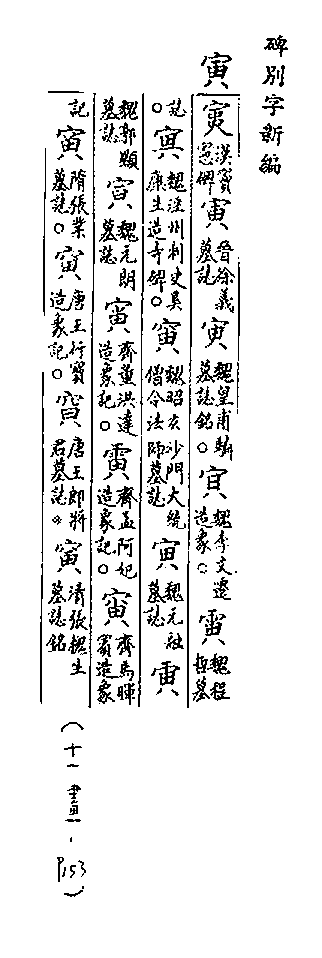 碑別字新編
寅
寅漢竇憲碑寅晉徐義墓誌寅魏皇甫驎墓誌銘。寅魏李文遷造象。寅魏程哲墓
誌。寅魏涇州刺史奚康生造寺碑。寅魏昭玄沙門大統僧令法師墓誌寅魏元融墓誌寅
魏郭顯墓誌寅魏元朗墓誌寅齊董洪達造象記。寅齊孟阿妃造象記。寅齊馬暉賓造象
記寅隋張業墓誌。寅唐王行寶造象記。寅唐王郎將君墓誌。寅清張槐生墓誌銘
(十一畫.P153)